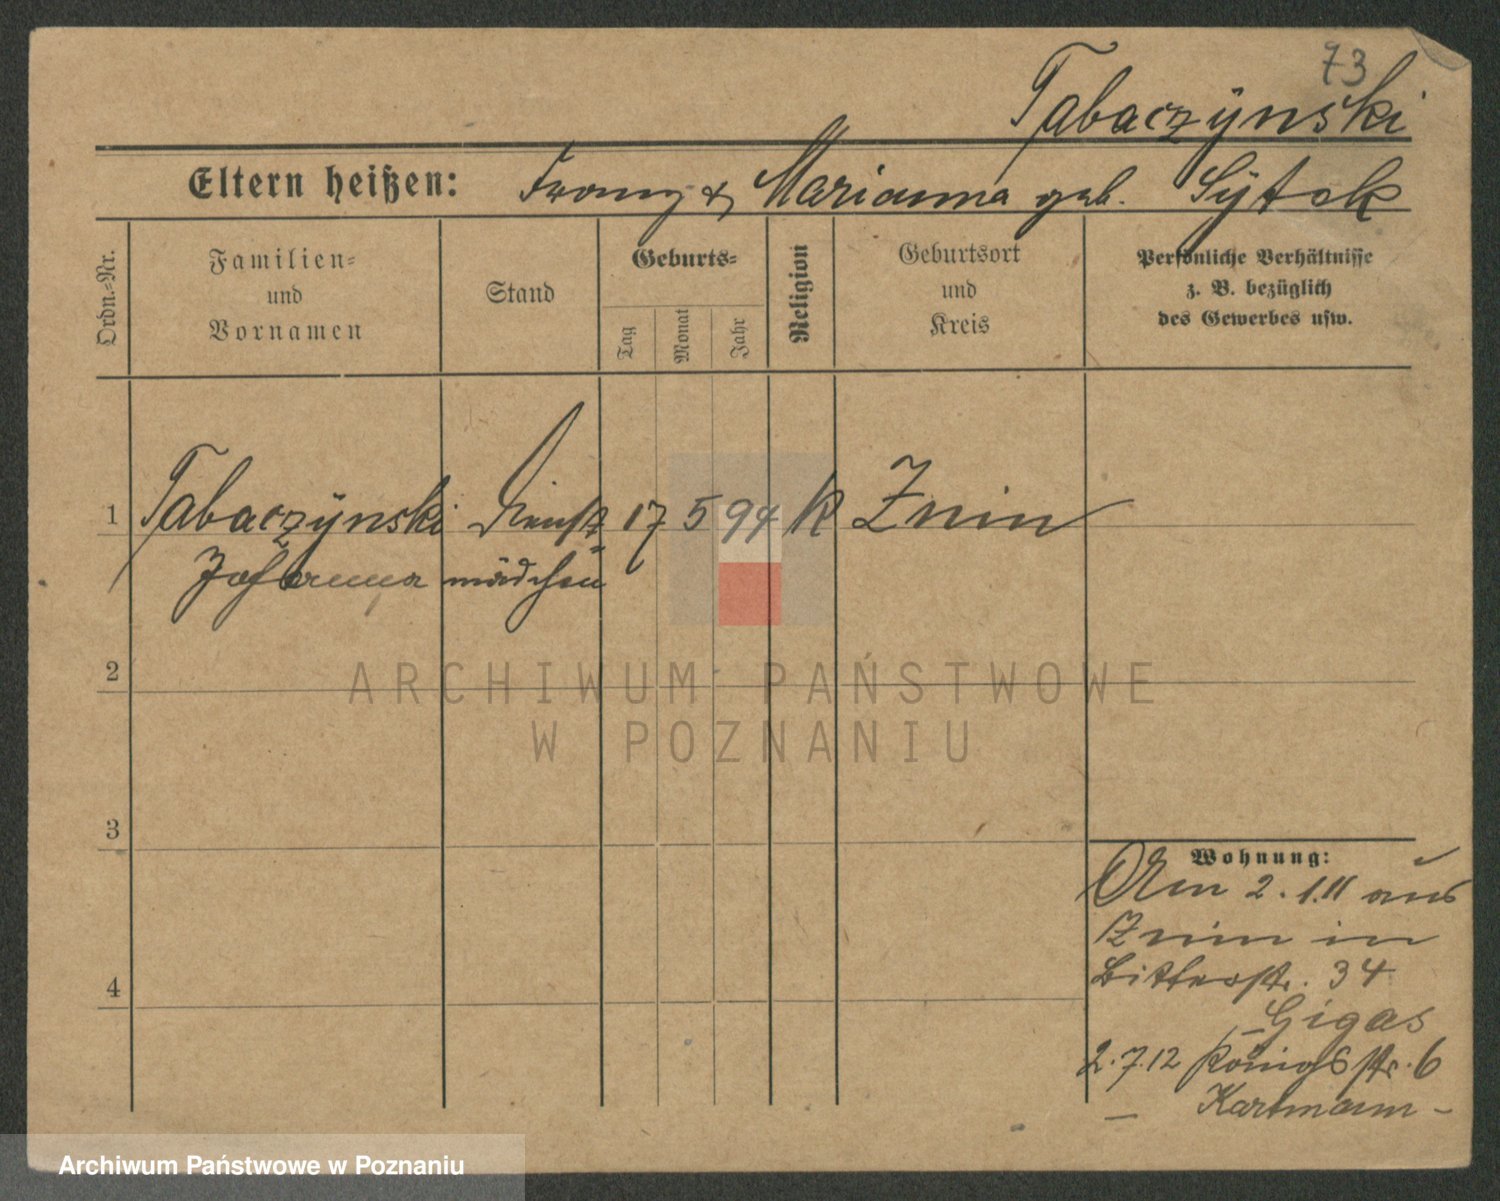 73
Tabaczÿnski
Eltern heißen: Franz & Marianna geb. Sÿtek
Ordn.-Nr.
Familien- und Vornamen
Stand
Geburts-
Tag
Monat
Jahr
Religion
Geburtsort und Kreis
Persönliche Verhältnisse
z. B. bezüglich
des Gewerbes usw.
1 Tabaczÿnski Dienst 17 5 94 k Znin
Johanna mädchen
2
3
4
Wohnung:
Am 2.1.11 aus
Znin in
Bitterstr. 34
Gigas
2.7.12 Königsstr. 6
– Hartmann –
ARCHIWUM PAŃSTWOWE
W POZNANIU
Archiwum Państwowe w Poznaniu